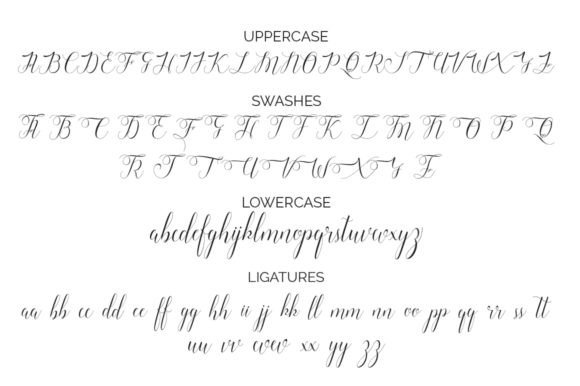 UPPERCASE
ABCDEFGHIJKLMNOPQRSTUVWXYZ
SWASHES
A B C D E F G H I J K L M N O P Q
R S T U V W X Y Z
LOWERCASE
abcdefghijklmnopqrstuvwxyz
LIGATURES
aa bb cc dd ee ff gg hh ii jj kk ll mm nn oo pp qq rr ss tt
uu vv ww xx yy zz